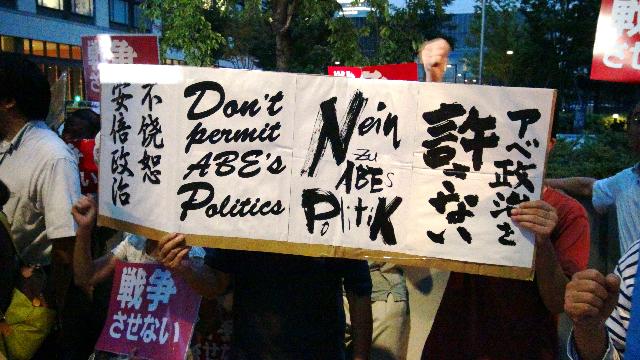 不饶恕
安倍政治
Don't
permit
ABE's
Politics
Nein
zu
ABEs
Politik
アベ政治を
許さない
戦争
させない
戦争
させ
戦
させ